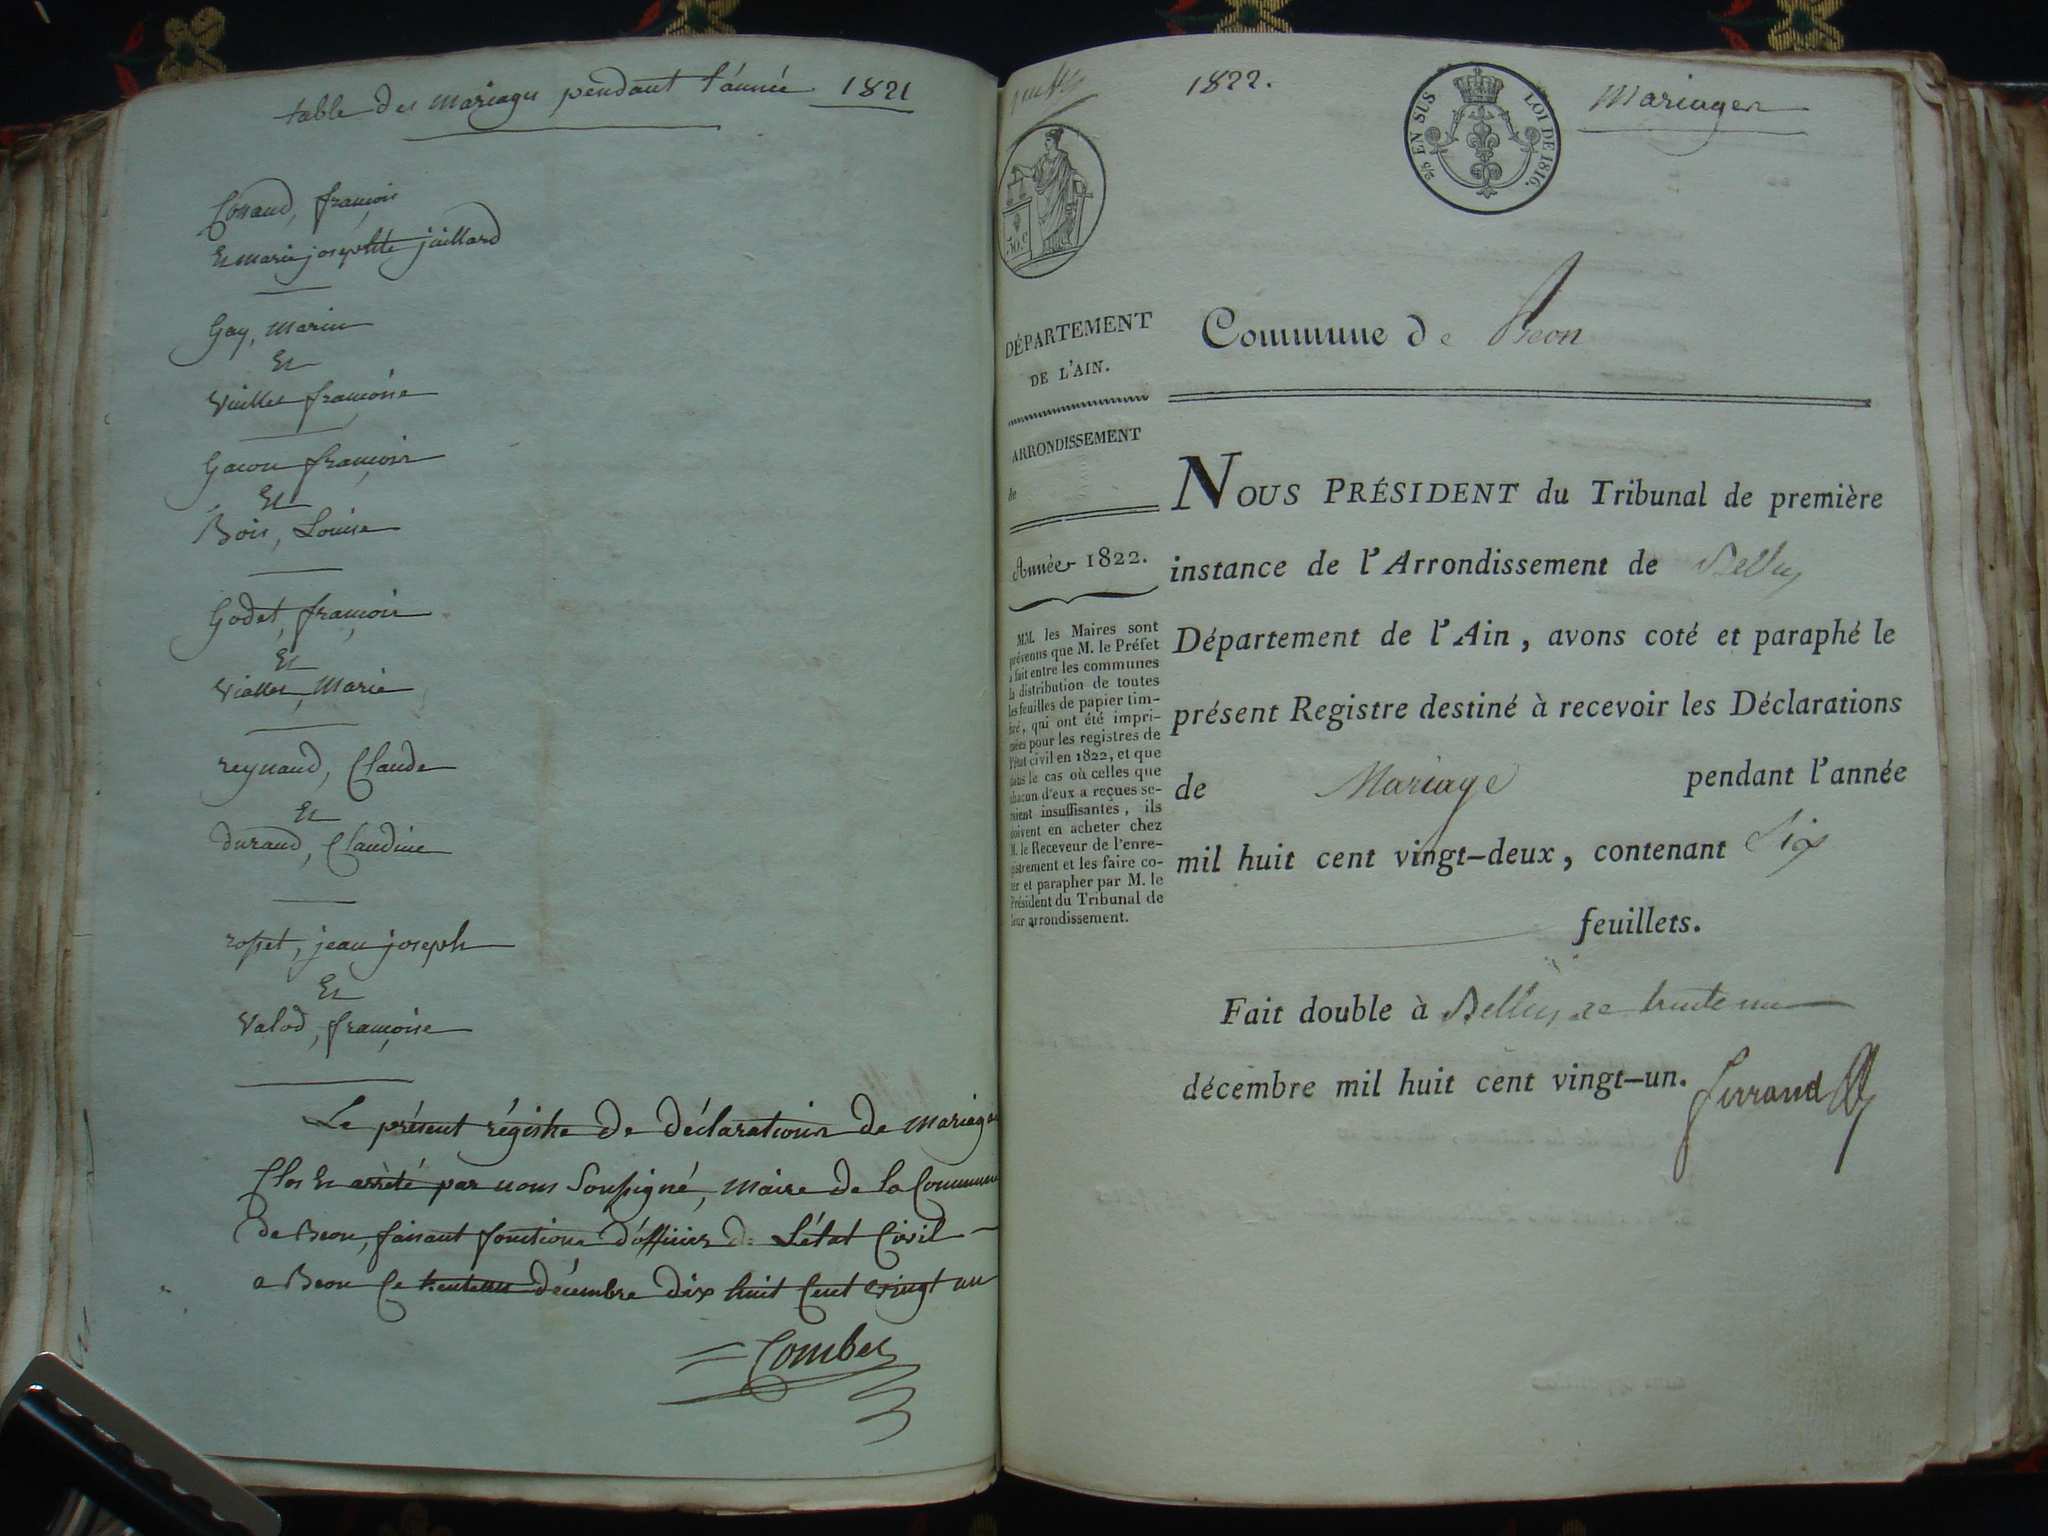 table des mariages pendant l'année 1821
Cossand, françois
Et marie josephte juillard
Gay, Marin
Et
Vuillet françoise
Gacon françois
Et
Bois, Louise
Godet, françois
Et
Viallet, Marie
reynaud, Claude
Et
durand, Claudine
rosset, jean joseph
Et
Valod, françoise
Le présent régistre de déclarations de mariages
Clos Et arrêté par nous Soussigné, Maire de la Commune
de Beon, faisant fonctions d'officier de L'état Civil
a Beon Ce trente un décembre dix huit Cent vingt un
Combet
1822.
Mariages
EN SUS
LOI DE 1816.
50.c
DÉPARTEMENT
DE L'AIN.
ARRONDISSEMENT
de
Année 1822.
MM. les Maires sont
prévenus que M. le Préfet
a fait entre les communes
la distribution de toutes
les feuilles de papier tim-
bré, qui ont été impri-
mées pour les registres de
l'état civil en 1822, et que
dans le cas où celles que
chacun d'eux a reçues se-
raient insuffisantes, ils
doivent en acheter chez
M. le Receveur de l'enre-
gistrement et les faire co-
ter et parapher par M. le
Président du Tribunal de
leur arrondissement.
Commune de Beon
NOUS PRÉSIDENT du Tribunal de première
instance de l'Arrondissement de Belley
Département de l'Ain, avons coté et paraphé le
présent Registre destiné à recevoir les Déclarations
de Mariage pendant l'année
mil huit cent vingt-deux, contenant Six
feuillets.
Fait double à Belley ce trente un
décembre mil huit cent vingt-un.
Ferrand